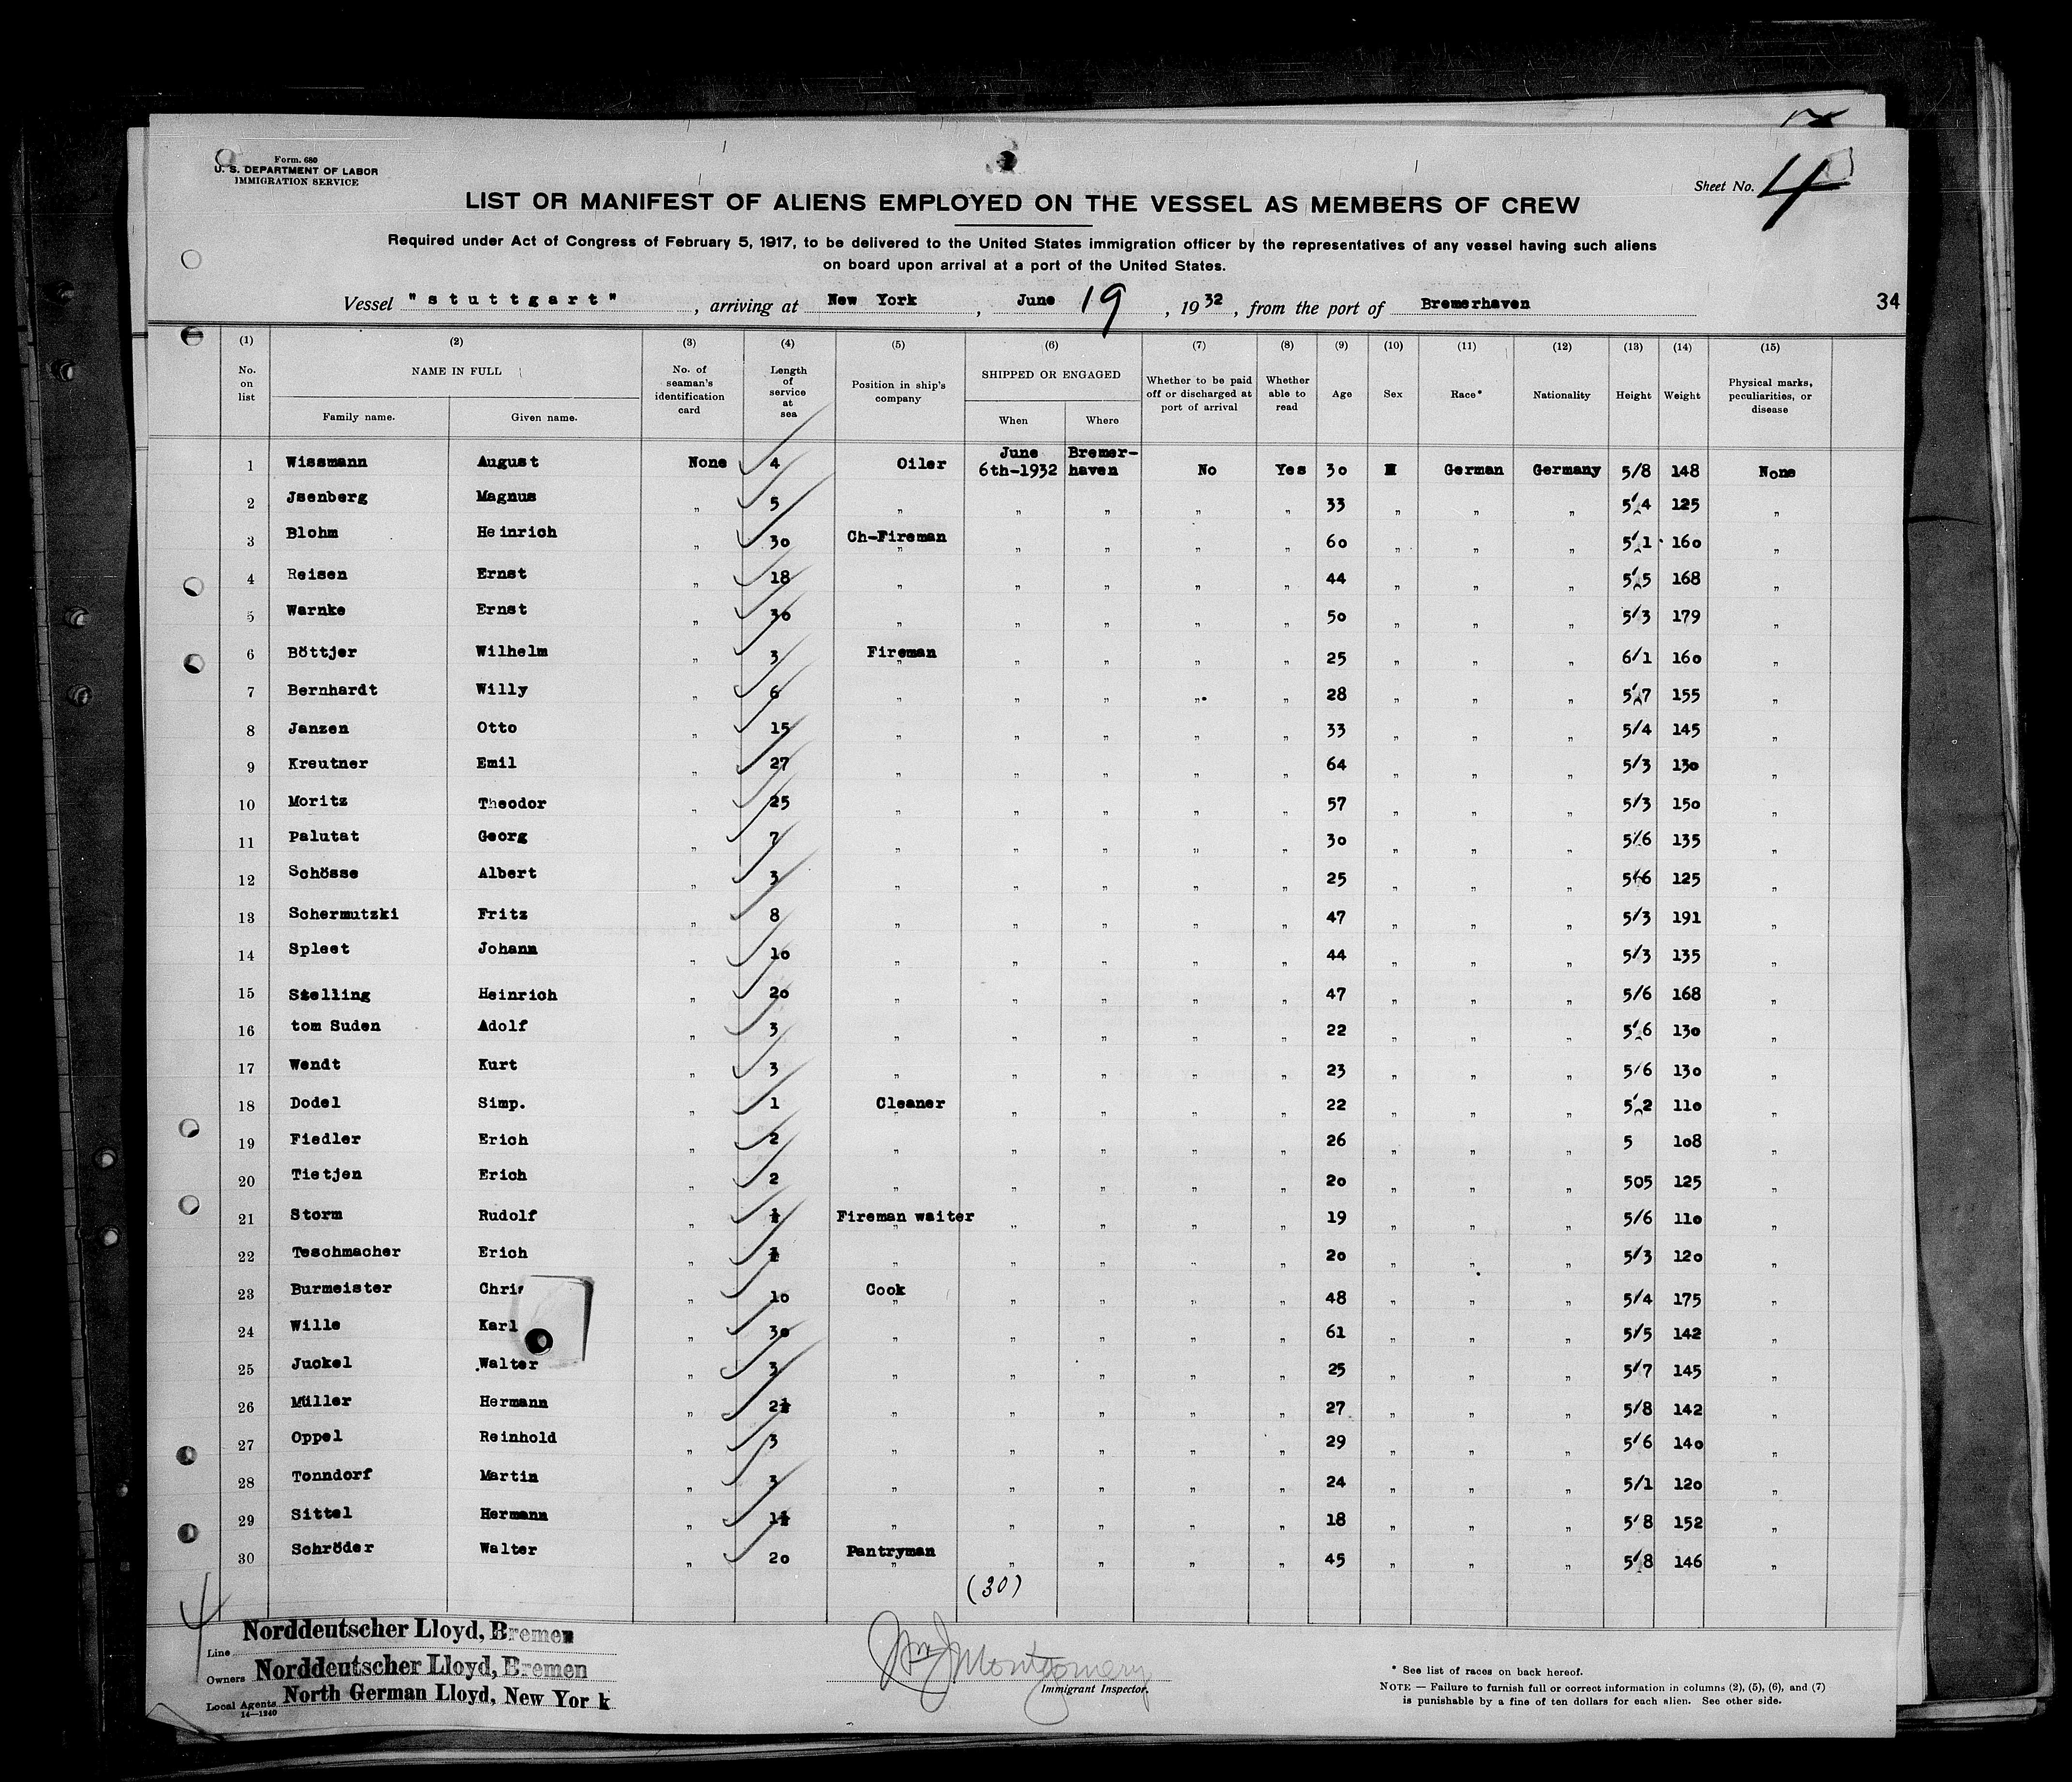 Form. 680
U. S. DEPARTMENT OF LABOR
IMMIGRATION SERVICE
Sheet No. 4
LIST OR MANIFEST OF ALIENS EMPLOYED ON THE VESSEL AS MEMBERS OF CREW
Required under Act of Congress of February 5, 1917, to be delivered to the United States immigration officer by the representatives of any vessel having such aliens
on board upon arrival at a port of the United States.
Vessel "stuttgart", arriving at New York, June 19, 1932, from the port of Bremerhaven
34
(1) (2) (3) (4) (5) (6) (7) (8) (9) (10) (11) (12) (13) (14) (15)
No. on list
NAME IN FULL
Family name. Given name.
No. of seaman's identification card
Length of service at sea
Position in ship's company
SHIPPED OR ENGAGED
When Where
Whether to be paid off or discharged at port of arrival
Whether able to read
Age
Sex
Race*
Nationality
Height
Weight
Physical marks, peculiarities, or disease
1 Wissmann August None 4 Oiler June 6th-1932 Bremer-haven No Yes 30 M German Germany 5/8 148 None
2 Jsenberg Magnus " 5 " " " " " 33 " " " 5/4 125 "
3 Blohm Heinrich " 30 Ch-Fireman " " " " 60 " " " 5/1 160 "
4 Reisen Ernst " 18 " " " " " 44 " " " 5/5 168 "
5 Warnke Ernst " 30 " " " " " 50 " " " 5/3 179 "
6 Böttjer Wilhelm " 3 Fireman " " " " 25 " " " 6/1 160 "
7 Bernhardt Willy " 6 " " " " " 28 " " " 5/7 155 "
8 Janzen Otto " 15 " " " " " 33 " " " 5/4 145 "
9 Kreutner Emil " 27 " " " " " 64 " " " 5/3 130 "
10 Moritz Theodor " 25 " " " " " 57 " " " 5/3 150 "
11 Palutat Georg " 7 " " " " " 30 " " " 5/6 135 "
12 Schösse Albert " 3 " " " " " 25 " " " 5/6 125 "
13 Schermutzki Fritz " 8 " " " " " 47 " " " 5/3 191 "
14 Spleet Johann " 10 " " " " " 44 " " " 5/3 135 "
15 Stelling Heinrich " 20 " " " " " 47 " " " 5/6 168 "
16 tom Suden Adolf " 3 " " " " " 22 " " " 5/6 130 "
17 Wendt Kurt " 3 " " " " " 23 " " " 5/6 130 "
18 Dodel Simp. " 1 Cleaner " " " " 22 " " " 5/2 110 "
19 Fiedler Erich " 2 " " " " " 26 " " " 5 108 "
20 Tietjen Erich " 2 " " " " " 20 " " " 505 125 "
21 Storm Rudolf " Fireman waiter " " " " 19 " " " 5/6 110 "
22 Teschmacher Erich " " " " " " 20 " " " 5/3 120 "
23 Burmeister Chris " 10 Cook " " " " 48 " " " 5/4 175 "
24 Wille Karl " 30 " " " " " 61 " " " 5/5 142 "
25 Juckel Walter " 3 " " " " " 25 " " " 5/7 145 "
26 Müller Hermann " 2½ " " " " " 27 " " " 5/8 142 "
27 Oppel Reinhold " 3 " " " " " 29 " " " 5/6 140 "
28 Tonndorf Martin " 3 " " " " " 24 " " " 5/1 120 "
29 Sittel Hermann " 1½ " " " " " 18 " " " 5/8 152 "
30 Schröder Walter " 20 Pantryman " " " " 45 " " " 5/8 146 "
(30)
4
Line Norddeutscher Lloyd, Bremen
Owners Norddeutscher Lloyd, Bremen
Local Agents North German Lloyd, New York
14—1240
Wm J Montgomery
Immigrant Inspector.
* See list of races on back hereof.
NOTE — Failure to furnish full or correct information in columns (2), (5), (6), and (7)
is punishable by a fine of ten dollars for each alien. See other side.